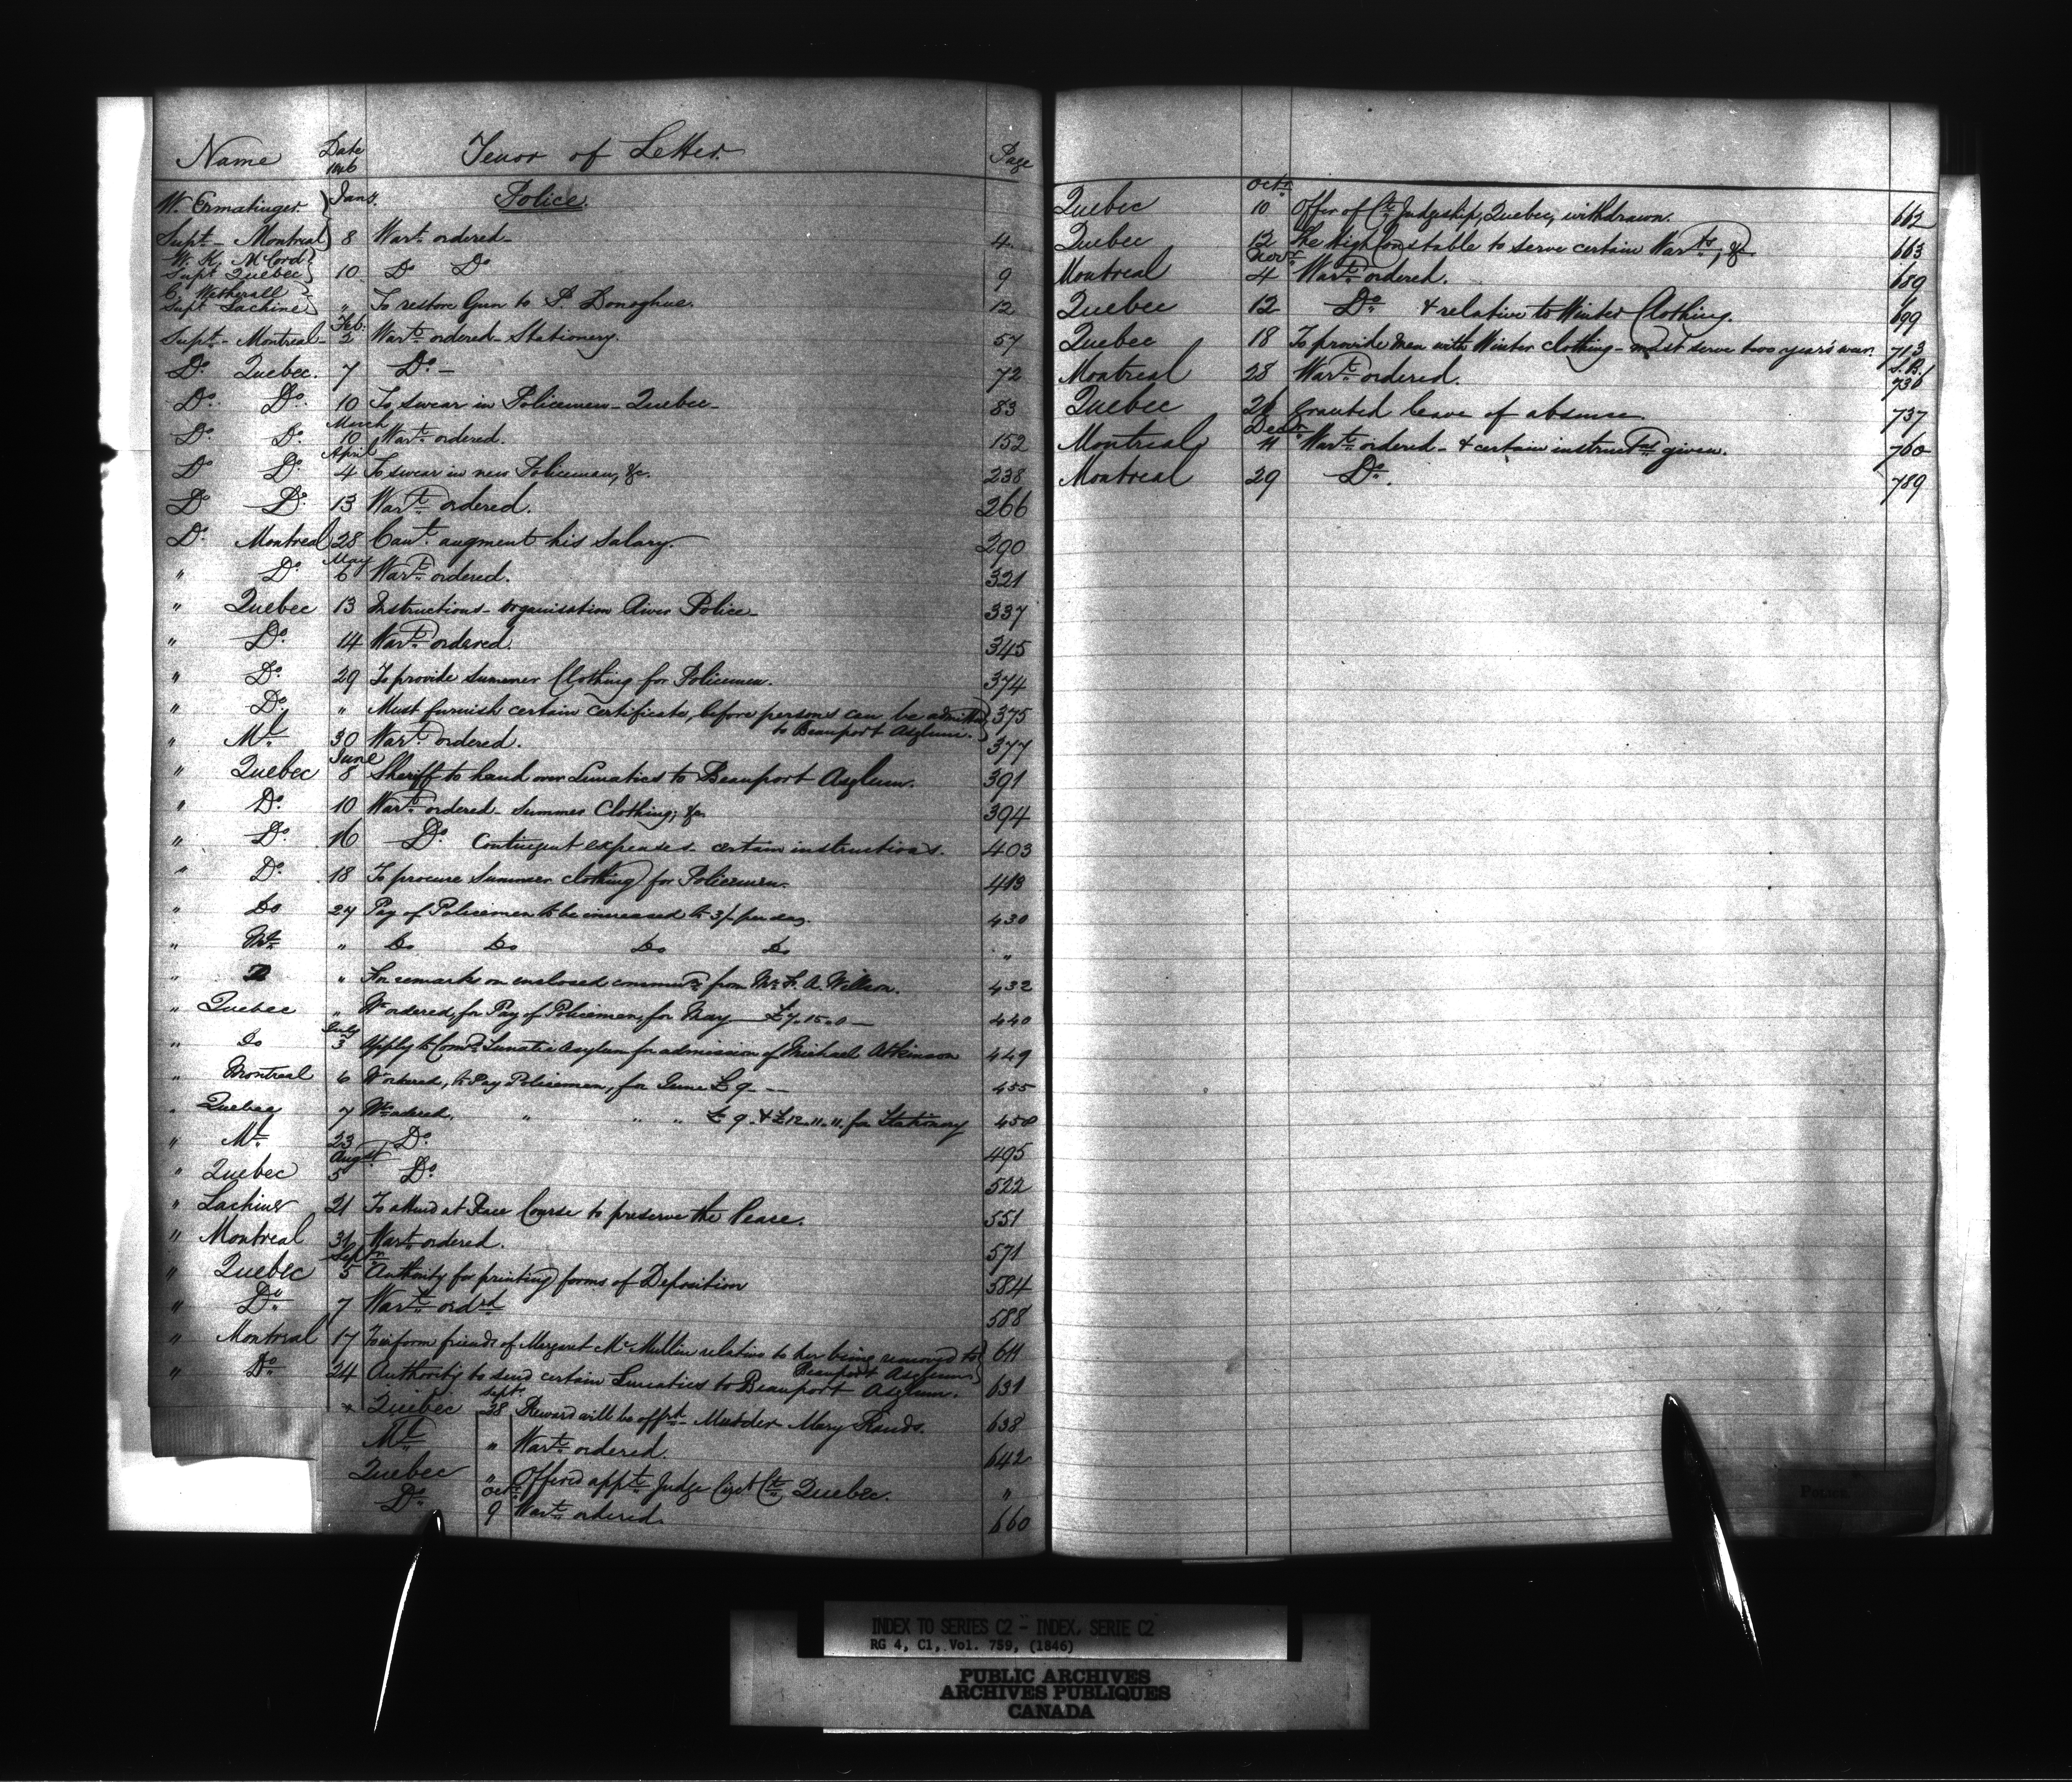 Name Date 1846 Tenor of Letter. Page
W. Ermatinger } Jany. Police.
Supt - Montreal } 8 Wart. ordered - 4
W. K. McCord }
Supt Quebec } 10 Do Do 9
C. Wetherall }
Supt Lachine } " To restore Gun to P. Donoghue. 12
Feb.
Supt - Montreal - 2 Warts ordered - Stationery. 57
Do. Quebec. 7 Do. - 72
Do. Do. 10 To swear in Policemen - Quebec - 83
March
Do. Do. 10 Wart. ordered. 152
April
Do Do 4 To swear in new Policeman, &c. 238
Do Do. 13 Wart. ordered. 266
Do. Montreal 28 Can't augment his Salary. 290
May
" Do. 6 Wart. ordered. 321
" Quebec 13 Instructions - organisation River Police - 337
" Do. 14 Warts. ordered. 345
" Do. 29 To provide Summer Clothing for Policemen. 374
" Do. " Must furnish certain certificate, before persons can be admitted } 375
to Beauport Asylum. }
" Ml. 30 Wart. ordered. 377
June
" Quebec 8 Sheriff to hand over Lunatics to Beauport Asylum. 391
" Do. 10 Warts. ordered - Summer Clothing; &c. 394
" Do. 16 Do. Contingent expenses. certain instructions. 403
" Do. 18 To procure Summer clothing for Policemen. 413
" Do 24 Pay of Policemen to be increased to 3/- per day. 430
" " Do Do Do Do "
" " For remarks on enclosed commun from Mr A. Willson. 432
" Quebec " Wt ordered, for Pay of Policemen, for May £7.15.0 - 440
July
" Do 3 Apply to Comrs. Lunatic Asylum for admission of Michael Atkinson 449
" Montreal 6 Wt ordered, to Pay Policemen, for June £9 - - 455
" Quebec 7 Wt ordered, " " " £9. & £12.11.11. for Stationery 458
" Ml. 23 Do. 495
Augst
" Quebec 5 Do. 522
" Lachine 21 To attend at Race Course to preserve the Peace. 551
" Montreal 31 Wart. ordered. 571
Sepr
" Quebec 5 Authority for printing forms of Deposition 584
" Do. 7 Wart. ordrd 588
" Montreal 17 To inform friends of Margaret McMullin relative to her being removed to } 611
Beauport Asylum }
" Do. 24 Authority to send certain Lunatics to Beauport Asylum. 631
Sept.
" Quebec 28 Reward will be offrd - Murder Mary Rands. 638
Ml. " Wart. ordered. 642
Quebec " Offered appt. Judge Circt Ct. Quebec. "
Octr.
Do. 9 Wart. ordered. 660
Octr.
Quebec 10 Offer of Ct. Judgeship, Quebec, withdrawn. 662
Quebec 12 The High Constable to serve certain Warts, &c 663
Novr.
Montreal 4 Wart. ordered. 689
Quebec 12 Do. & relative to Winter Clothing. 699
Quebec 18 To provide men with Winter clothing - must serve two years' wear. 713
Montreal 28 Wart. ordered. L.B. 736
Quebec 28 Granted leave of absence. 737
Decr.
Montreal 11 Wart. ordered - & certain instructns given. 760
Montreal 29 Do. 789
POLICE
INDEX TO SERIES C2 - INDEX, SERIE C2
RG 4, C1, Vol. 759, (1846)
PUBLIC ARCHIVES
ARCHIVES PUBLIQUES
CANADA